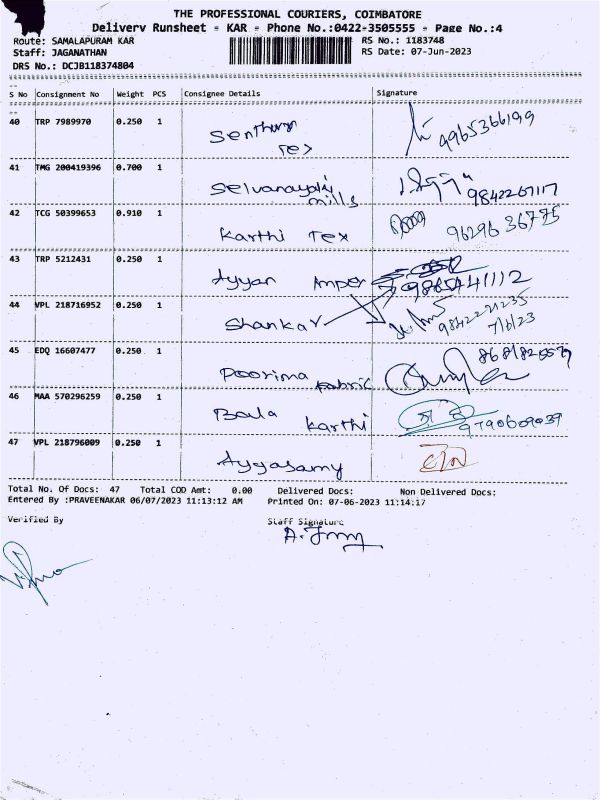 THE PROFESSIONAL COURIERS, COIMBATORE
Delivery Runsheet - KAR - Phone No.:0422-3505555 - Page No.:4
Route: SAMALAPURAM KAR RS No.: 1183748
Staff: JAGANATHAN RS Date: 07-Jun-2023
DRS No.: DCJB118374804
S No Consignment No Weight PCS Consignee Details Signature
40 TRP 7989970 0.250 1 Senthur Tex 9965366199
41 TMG 200419396 0.700 1 Selvanayaki mills 9842267117
42 TCG 50399653 0.910 1 Karthi Tex 9629636775
43 TRP 5212431 0.250 1 Ayyan Amper
44 VPL 218716952 0.250 1 Shankar 7/6/23
45 EDQ 16607477 0.250 1 Poorima fabric
46 MAA 570296259 0.250 1 Bala Karthi 9790609039
47 VPL 218796009 0.250 1 Ayyasamy
Total No. Of Docs: 47 Total COD Amt: 0.00 Delivered Docs: Non Delivered Docs:
Entered By :PRAVEENAKAR 06/07/2023 11:13:12 AM Printed On: 07-06-2023 11:14:17
Verified By Staff Signature